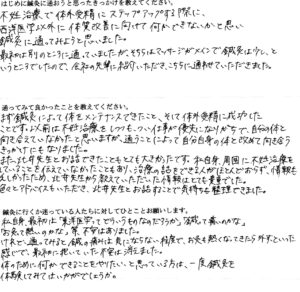 はじめに鍼灸に通おうと思ったきっかけを教えてください。
不妊治療で体外受精にステップアップする際に、
西洋医学以外に体質改善に向けて何かできないかと思い
鍼灸に通ってみようと思いました。
最初は別のところに通っていましたが、そちらはマッサージがメインで鍼灸は少し、と
いうところでしたので、会社の先輩に紹介いただき、こちらに通わせていただきました。
通ってみて良かったことを教えてください。
まず鍼灸によって体をメンテナンスできたこと、そして体外受精に成功した
ことです。以前は不妊治療をしつつも、つい仕事が優先になりがちで、自分の体と
向き合えていなかったと思いますが、通うことによって自分自身の体と改めて向き合う
きっかけにもなりました。
また辻井先生とお話できたこともとても大きかったです。私自身、周囲に不妊治療を
していることを伝えていなかったこともあり、治療の話をできる人がほとんどおらず、情報も
乏しかったため、辻井先生から教えていただいた情報はとても貴重でした。
色々とアドバイスもいただき、辻井先生とお話することで気持ちも整理できました。
鍼灸に行くか迷っている人たちに対してひとことお願いします。
私自身、最初は「東洋医学ってどういうものなのだろうか」「鍼って痛いのかな」
「お灸って熱いのかな」等、不安はありました。
けれど、通ってみると鍼の痛みは気にならない程度で、お灸も熱くなってきたら外すといった
感じで、最初に抱いていた不安は消えました。
体のために何かできることをやりたい、と思っている方は、一度鍼灸を
体験してみてはいかがでしょうか。